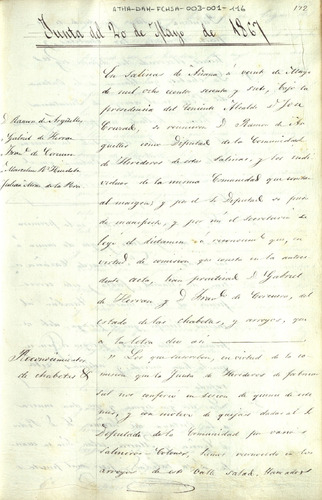 ATHA-DAH-FCHSA-003-001-116
172
Junta del 20 de Mayo de 1867
En Salinas de Añana á veinte de Mayo
de mil ocho cientos sesenta y siete, bajo la
presidencia del Teniente Alcalde D. José
se reunieron D. Ramon de Ar-
guelles como Diputado de la Comunidad
de Herederos de estas Salinas, y los indi-
viduos de la misma Comunidad que constan
al margen; y por el Diputado se puso
de manifiesto, y por mi el Secretario se
leyó el dictamen ó reconocimiento que, en
virtud de comision que consta en la antece-
dente acta, han practicado D. Gabriel
de Herran y D. Franco. de del
estado de las chabolas, y arroyos, que
á la letra dice así
D. Ramon de Argüelles
Gabriel de Herran
Franco. de
Julian de la
Reconocimiento
de chabolas &
Los que suscriben, en virtud de la co-
mision que la Junta de Herederos de fabricar
sal nos confirió en sesion de quince de este
mes, y con motivo de quejas dadas al
Diputado de la Comunidad por varios
salineros Colonos, hemos reconocido los
arroyos de este Valle salado, llamados